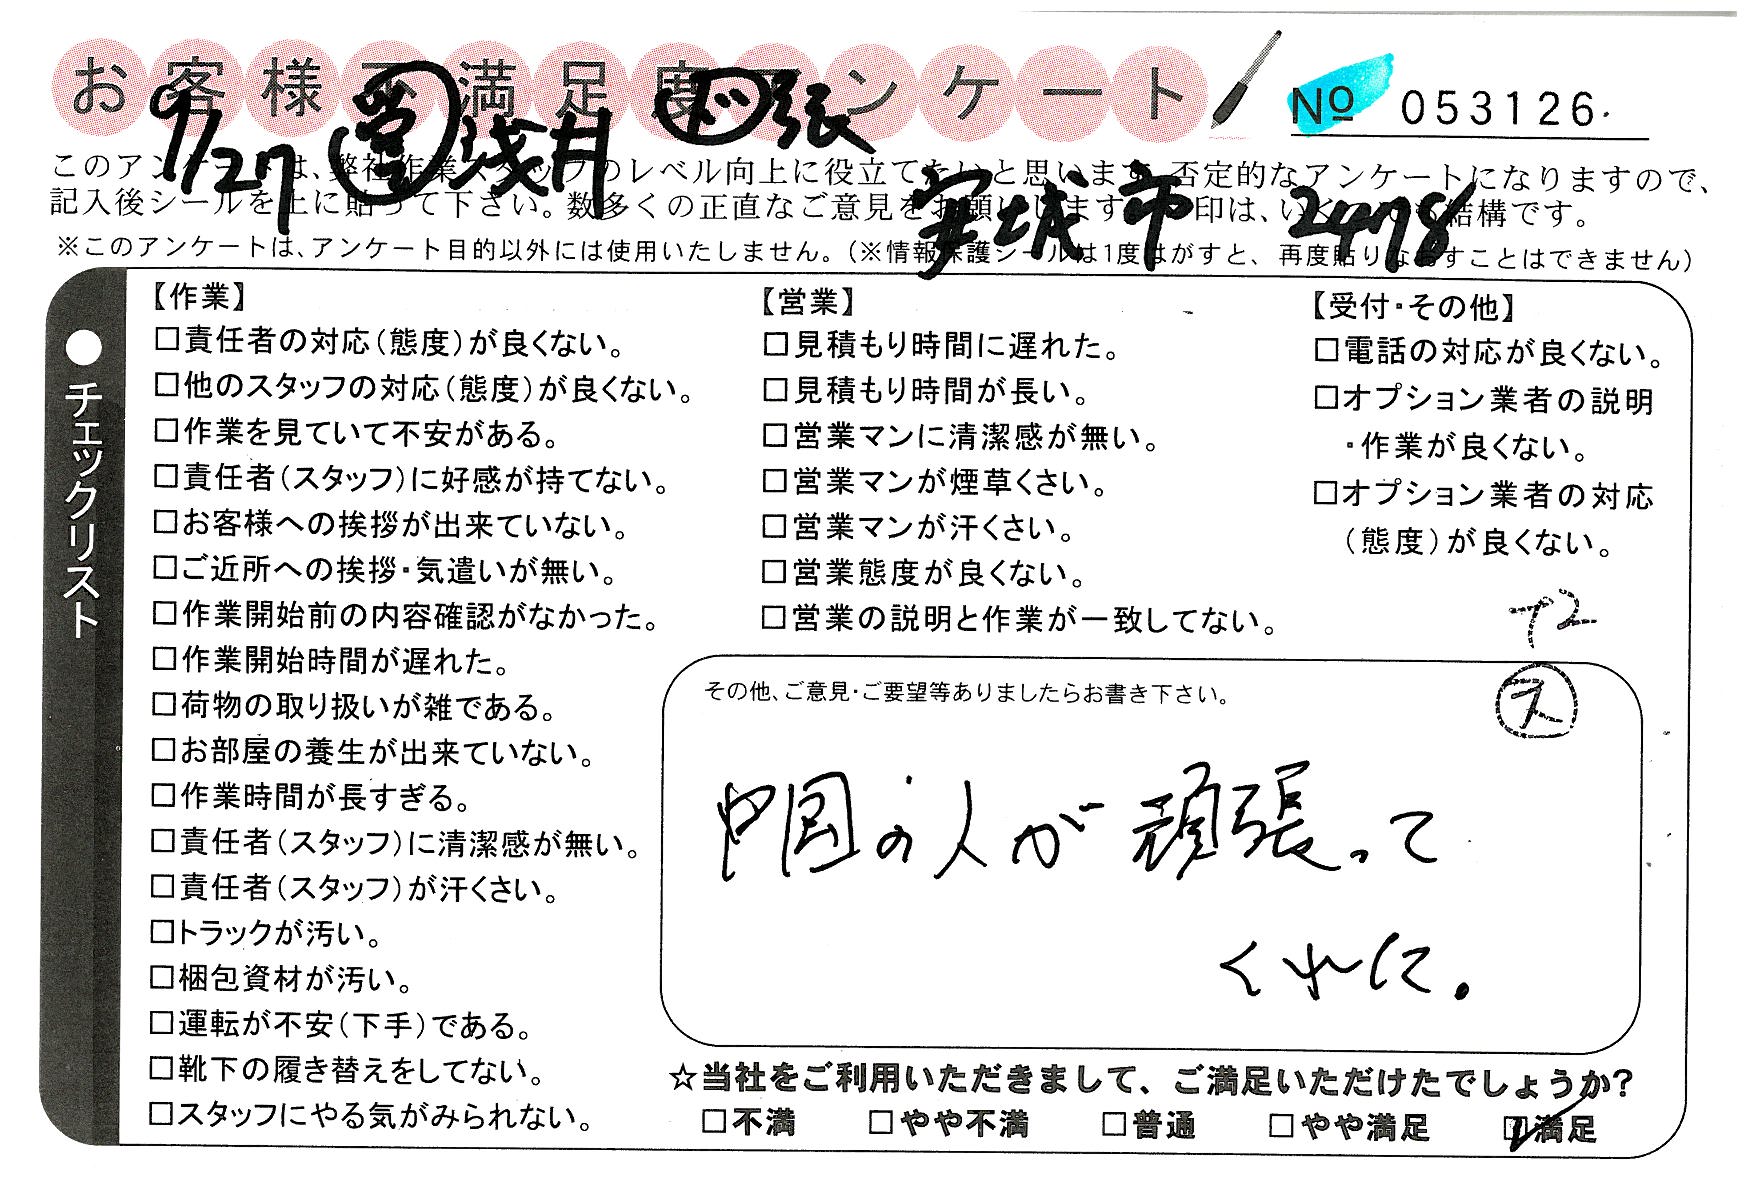 お客様不満足度アンケート
№ 053126
9/27 営 浅井 ド 張
このアンケートは、弊社作業スタッフのレベル向上に役立てたいと思います。否定的なアンケートになりますので、
記入後シールを上に貼って下さい。数多くの正直なご意見をお願いします。印は、いくつでも結構です。
安城市 2478
※このアンケートは、アンケート目的以外には使用いたしません。(※情報保護シールは1度はがすと、再度貼りなおすことはできません)
●チェックリスト
【作業】
□責任者の対応(態度)が良くない。
□他のスタッフの対応(態度)が良くない。
□作業を見ていて不安がある。
□責任者(スタッフ)に好感が持てない。
□お客様への挨拶が出来ていない。
□ご近所への挨拶・気遣いが無い。
□作業開始前の内容確認がなかった。
□作業開始時間が遅れた。
□荷物の取り扱いが雑である。
□お部屋の養生が出来ていない。
□作業時間が長すぎる。
□責任者(スタッフ)に清潔感が無い。
□責任者(スタッフ)が汗くさい。
□トラックが汚い。
□梱包資材が汚い。
□運転が不安(下手)である。
□靴下の履き替えをしてない。
□スタッフにやる気がみられない。
【営業】
□見積もり時間に遅れた。
□見積もり時間が長い。
□営業マンに清潔感が無い。
□営業マンが煙草くさい。
□営業マンが汗くさい。
□営業態度が良くない。
□営業の説明と作業が一致してない。
【受付・その他】
□電話の対応が良くない。
□オプション業者の説明
・作業が良くない。
□オプション業者の対応
(態度)が良くない。
+2
ス
その他、ご意見・ご要望等ありましたらお書き下さい。
中国の人が頑張って
くれた。
☆当社をご利用いただきまして、ご満足いただけたでしょうか?
□不満 □やや不満 □普通 □やや満足 ☑満足